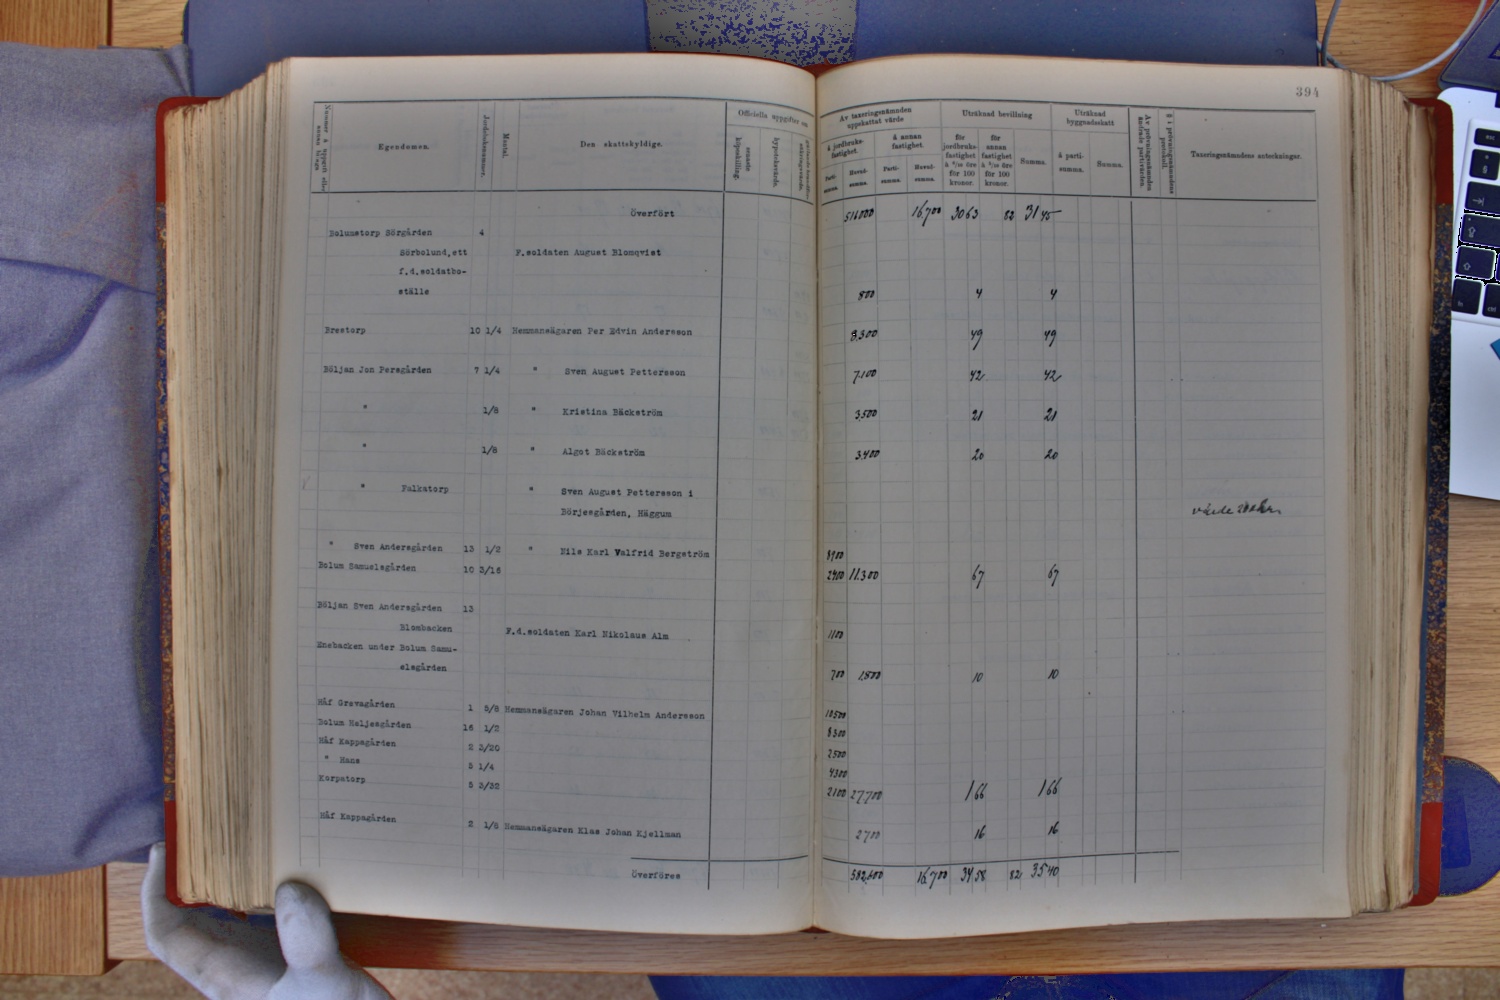 394
Nummer å uppgift eller annan bilaga.
Egendomen.
Jordeboksnummer.
Mantal.
Den skattskyldige.
Officiella uppgifter om
senaste köpeskilling.
hypoteksvärde.
Av taxeringsnämnden uppskattat värde
å jordbruksfastighet.
å annan fastighet.
Parti-summa.
Huvud-summa.
Parti-summa.
Huvud-summa.
Uträknad bevillning
för jordbruksfastighet à 6/10 öre för 100 kronor.
för annan fastighet à 5/10 öre för 100 kronor.
Summa.
Uträknad byggnadsskatt
å parti-summa.
Summa.
Av prövningsnämnden ändrade partivärden.
Taxeringsnämndens anteckningar.
Överfört 516000 16700 3063 82 3145
Bolumstorp Sörgården 4
Sörbolund, ett F.soldaten August Blomqvist
f.d.soldatbo-
ställe 800 4 4
Brestorp 10 1/4 Hemmansägaren Per Edvin Andersson 8.300 49 49
Böljan Jon Persgården 7 1/4 " Sven August Pettersson 7.100 42 42
" 1/8 " Kristina Bäckström 3.500 21 21
" 1/8 " Algot Bäckström 3.400 20 20
" Falkatorp " Sven August Pettersson i
Börjesgården, Häggum
" Sven Andersgården 13 1/2 " Nils Karl Valfrid Bergström 8900
Bolum Samuelsgården 10 3/16 2400 11.300 67 67
Böljan Sven Andersgården 13
Blombacken F.d.soldaten Karl Nikolaus Alm 1100
Enebacken under Bolum Samu-
elsgården 700 1.800 10 10
Håf Grevagården 1 5/8 Hemmansägaren Johan Vilhelm Andersson 10500
Bolum Heljesgården 16 1/2 8300
Håf Kappagården 2 3/20 2500
" Hans 5 1/4 4300
Korpatorp 5 3/32 2100 27.700 166 166
Håf Kappagården 2 1/8 Hemmansägaren Klas Johan Kjellman 2700 16 16
Överföres 582.600 16.700 3458 82 3540